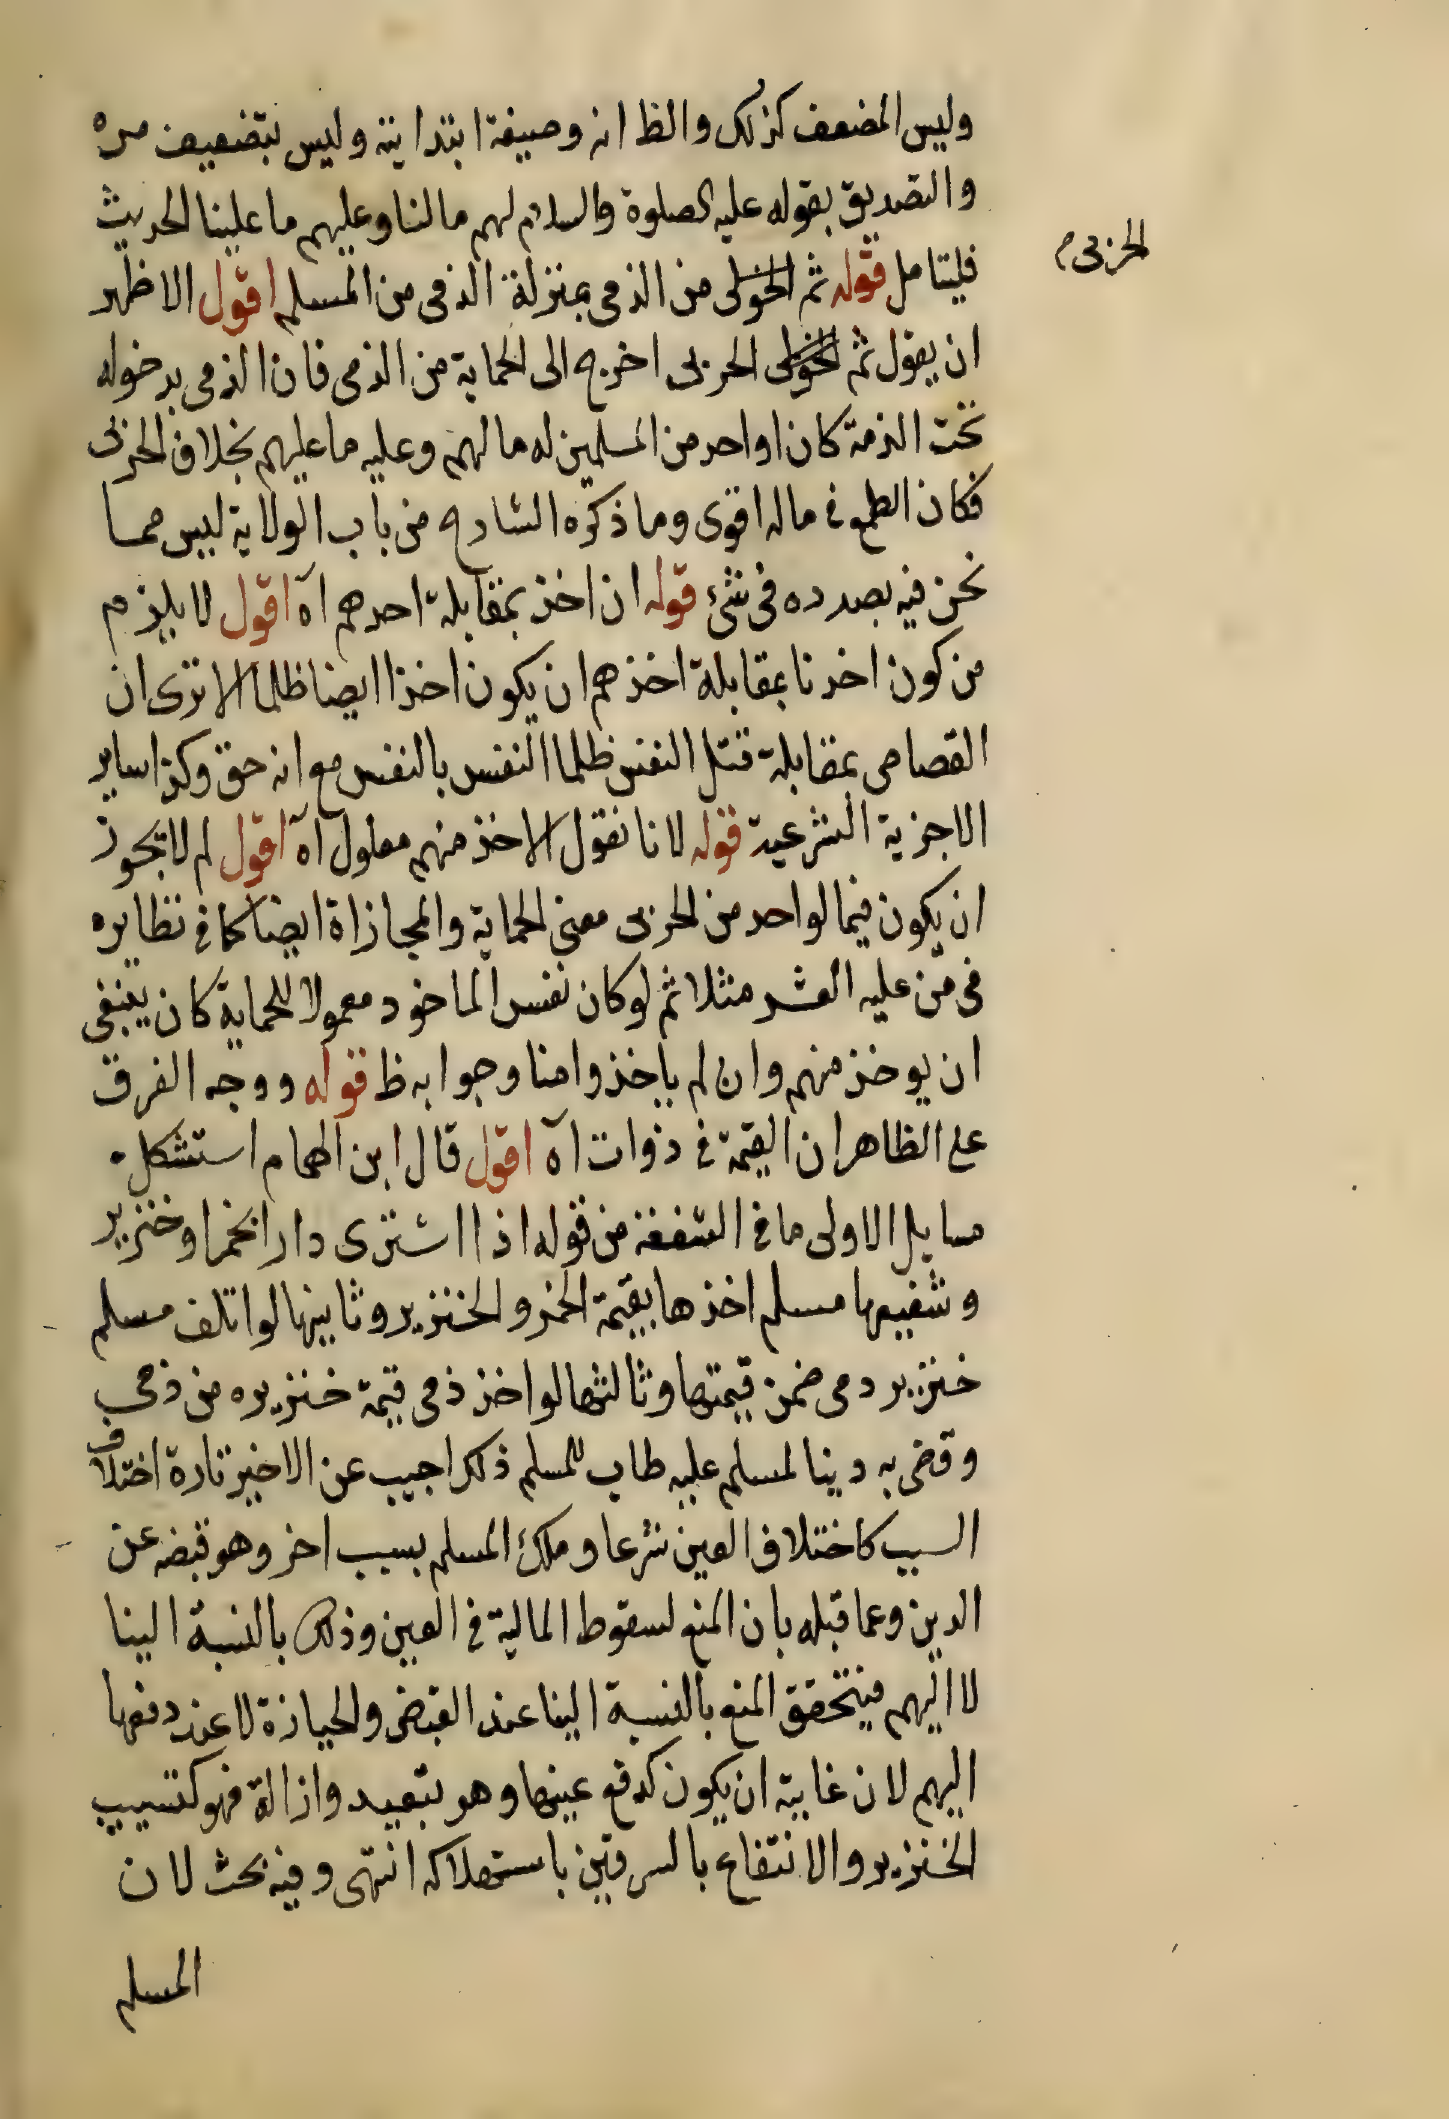 وليس المضعف كذلك والظ انه وصيفة ابتدايية وليس بتضعيف مره
والتصديق بقوله عليه الصلوة والسلام لهم مالنا وعليهم ما علينا الحديث
فليتامل قوله ثم من الذمى بمنزلة الذمى من المسلم اقول الاظهر
الحربى م
ان يقول ثم الحربى احرج الى الحماية من الذمى فان الذمى بدخوله
تحت الذمة كان اواحد من المسلمين له مالهم وعليه ما عليهم بخلاف الحربى
فكان الطمع فى ماله اقوى وما ذكره الشارح من باب الولاية ليس مما
نحن فيه بصدده فى شئ قوله ان اخذ بمقابلة احدهم اه اقول لا يلزم
من كون اخدنا بمقابلة اخذهم ان يكون اخذا ايضا ظلما الا ترى ان
القصاص بمقابلة قتل النفس ظلما النفس بالنفس مع انه حق وكذا ساير
الاجزية الشرعية قوله لانا نقول الاخذ منهم معلول اه اقول لم لا تجوز
ان يكون فيما لواحد من الحربى معنى الحماية والمجازاة ايضا كما فى نظايره
فى من عليه العشر مثلا ثم لو كان نفس الماخود معمولا للحماية كان ينبغى
ان يوخذ منهم وان لم ياخذوا منا وجوابه ظ قوله ووجه الفرق
على الظاهر ان القيمة فى ذوات اه اقول قال ابن الهمام استشكل
مسايل الاولى ما فى الشفعة من قوله اذا اشترى دارا بخمر او خنزير
وشفيعها مسلم اخذها بقيمة الخمر والخنزير وثانيها لو اتلف مسلم
خنزير دمى ضمن قيمتها وثالثها لو اخذ ذمى قيمة خنزيره من ذمى
وقضى به دينا لمسلم عليه طاب للمسلم ذلك اجيب عن الاخير تارة اختلاف
السبب كاختلاف العين شرعا وملك المسلم بسبب اخر وهو قبضه عن
الدين وعما قبله بان المنع لسقوط المالية فى العين وذلك بالنسبة الينا
لا اليهم فيتحقق المنع بالنسبة الينا عند القبض والحيازة لا عند دفعها
اليهم لان غايته ان يكون كدفع عينها وهو تبعيد وازالة فهو كتسييب
الخنزير والانتفاع بالسرقين باستهلاكه انتهى وفيه بحث لان
المسلم